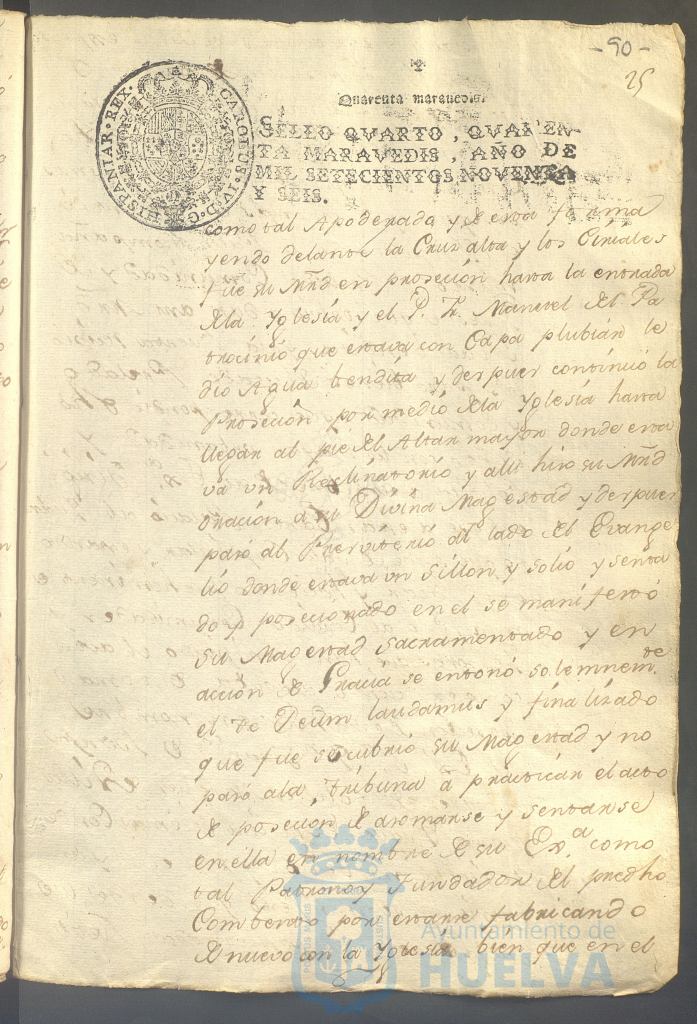 -90-
25
Quarenta maravedis.
SELLO QVARTO, QVAREN-
TA MARAVEDIS, AÑO DE
MIL SETECIENTOS NOVENTA
Y SEIS.
CAROLUS·IV·D·G·HISPANIAR·REX·
como tal Apoderado y de esta forma
yendo delante la Cruz alta y los Ciriales
fue su Mrd en prosecion hasta la entrada
de la Yglesia y el P. Fr. Manuel del Pa
trocinio que estava con Capa plubial le
dio Agua bendita y despues continuó la
Prosecion por medio de la Yglesia hasta
llegar al pie del Altar mayor donde esta
va un Reclinatorio y alli hizo su Mrd
oración a su Divina Magestad y despues
pasó al Presviterio al lado del Evange
lio donde estava un Sillon y Solio y senta
do y posecionado en el se manifestó
Su Magestad Sacramentado y en
acción de Gracia se entonó solemnemte
el Te Deum laudamus y finalizado
que fue se cubrió su Magestad y no
pasó a la tribuna á practicar el acto
de posecion de asomarse y sentarse
en ella en nombre de su Exa como
tal Patrono y Fundador del predho
Combento por estarse fabricando
de nuevo con la Yglesia bien que en el
Ayuntamiento de
HUELVA